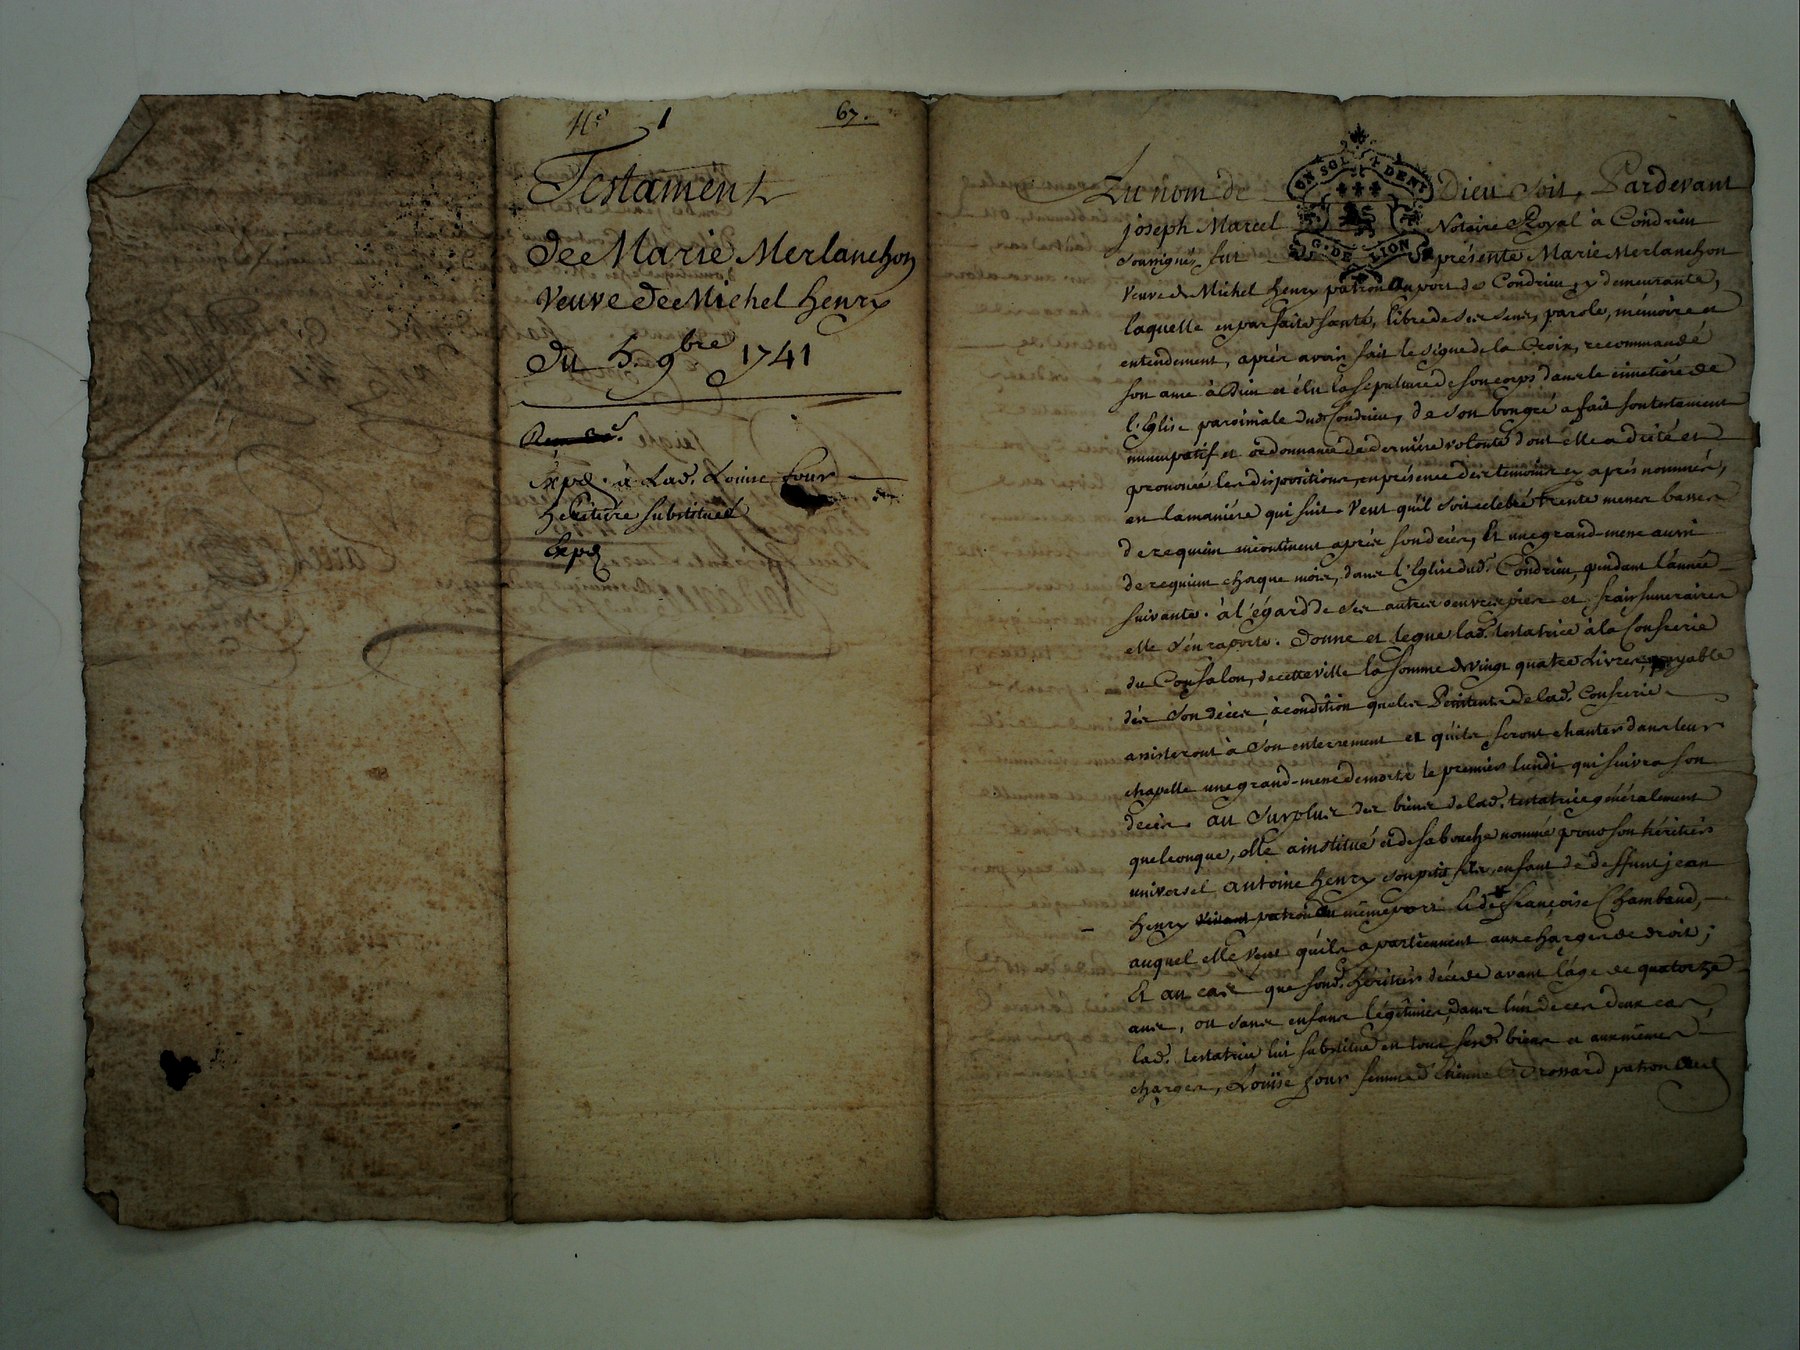 N.o 1 67.
Testament
de Marie Merlanchon
veuve de Michel henry
du 5. 9bre 1741
Exped. à Lad. Louise four
heritiére substituée
Exped
Au nom de Dieu soit, Pardevant
joseph Marcel Notaire Royal à Condrieu
soussigné, fut présente Marie Merlanchon
veuve de Michel henry patron au port de Condrieu, y demeurante,
laquelle en parfaite santé, libre de ses sens, parole, mémoire et
entendement, aprés avoir fait le signe de la Croix, recommandé
son ame à Dieu et élu la sepulture de son corps dans le cimetiére de
l'Eglise paroissiale dud. Condrieu, de son bongré a fait son testament
nuncupatif et ordonnance de derniere volonté dont elle a dicté et
prononcé les dispositions, en présence des temoins cy aprés nommés,
en la maniére qui suit. Veut qu'il soit celebré trente messes basses
de requiem incontinent aprés son decés, Et une grand-messe aussi
de requiem chaque mois, dans l'Eglise dud. Condrieu, pendant l'année
suivante. à l'égard de ses autres oeuvres pies et frais funeraires
elle s'en raporte. Donne et legue lad. testatrice à la Confrerie
du Confalon, de cette ville la somme de vingt quatre Livres, payable
dés son décés, à condition que les Penitents de lad. Confrerie
assisteront à son enterrement et qu'ils feront chanter dans leur
chapelle une grand-messe de morts le premier lundi qui suivra son
decés. au surplus des biens de lad. testatrice généralement
quelconque, elle a institué et de sa bouche nommé pour son héritier
universel antoine henry son petit fils, enfant de deffunt jean
henry vivant patron au même port et de françoise Chambaud,
auquel elle veut qu'ils apartiennent aux charges de droit;
Et au cas que sond. héritier décede avant l'âge de quatorze
ans, ou sans enfans légitimes, dans l'un de ces deux cas,
lad. testatrice lui substitue en tous sesd. biens et aux mêmes
charges, Louïse four femme d'Etienne Drossard patron aud
ON SOL X DENI
G. DE LION